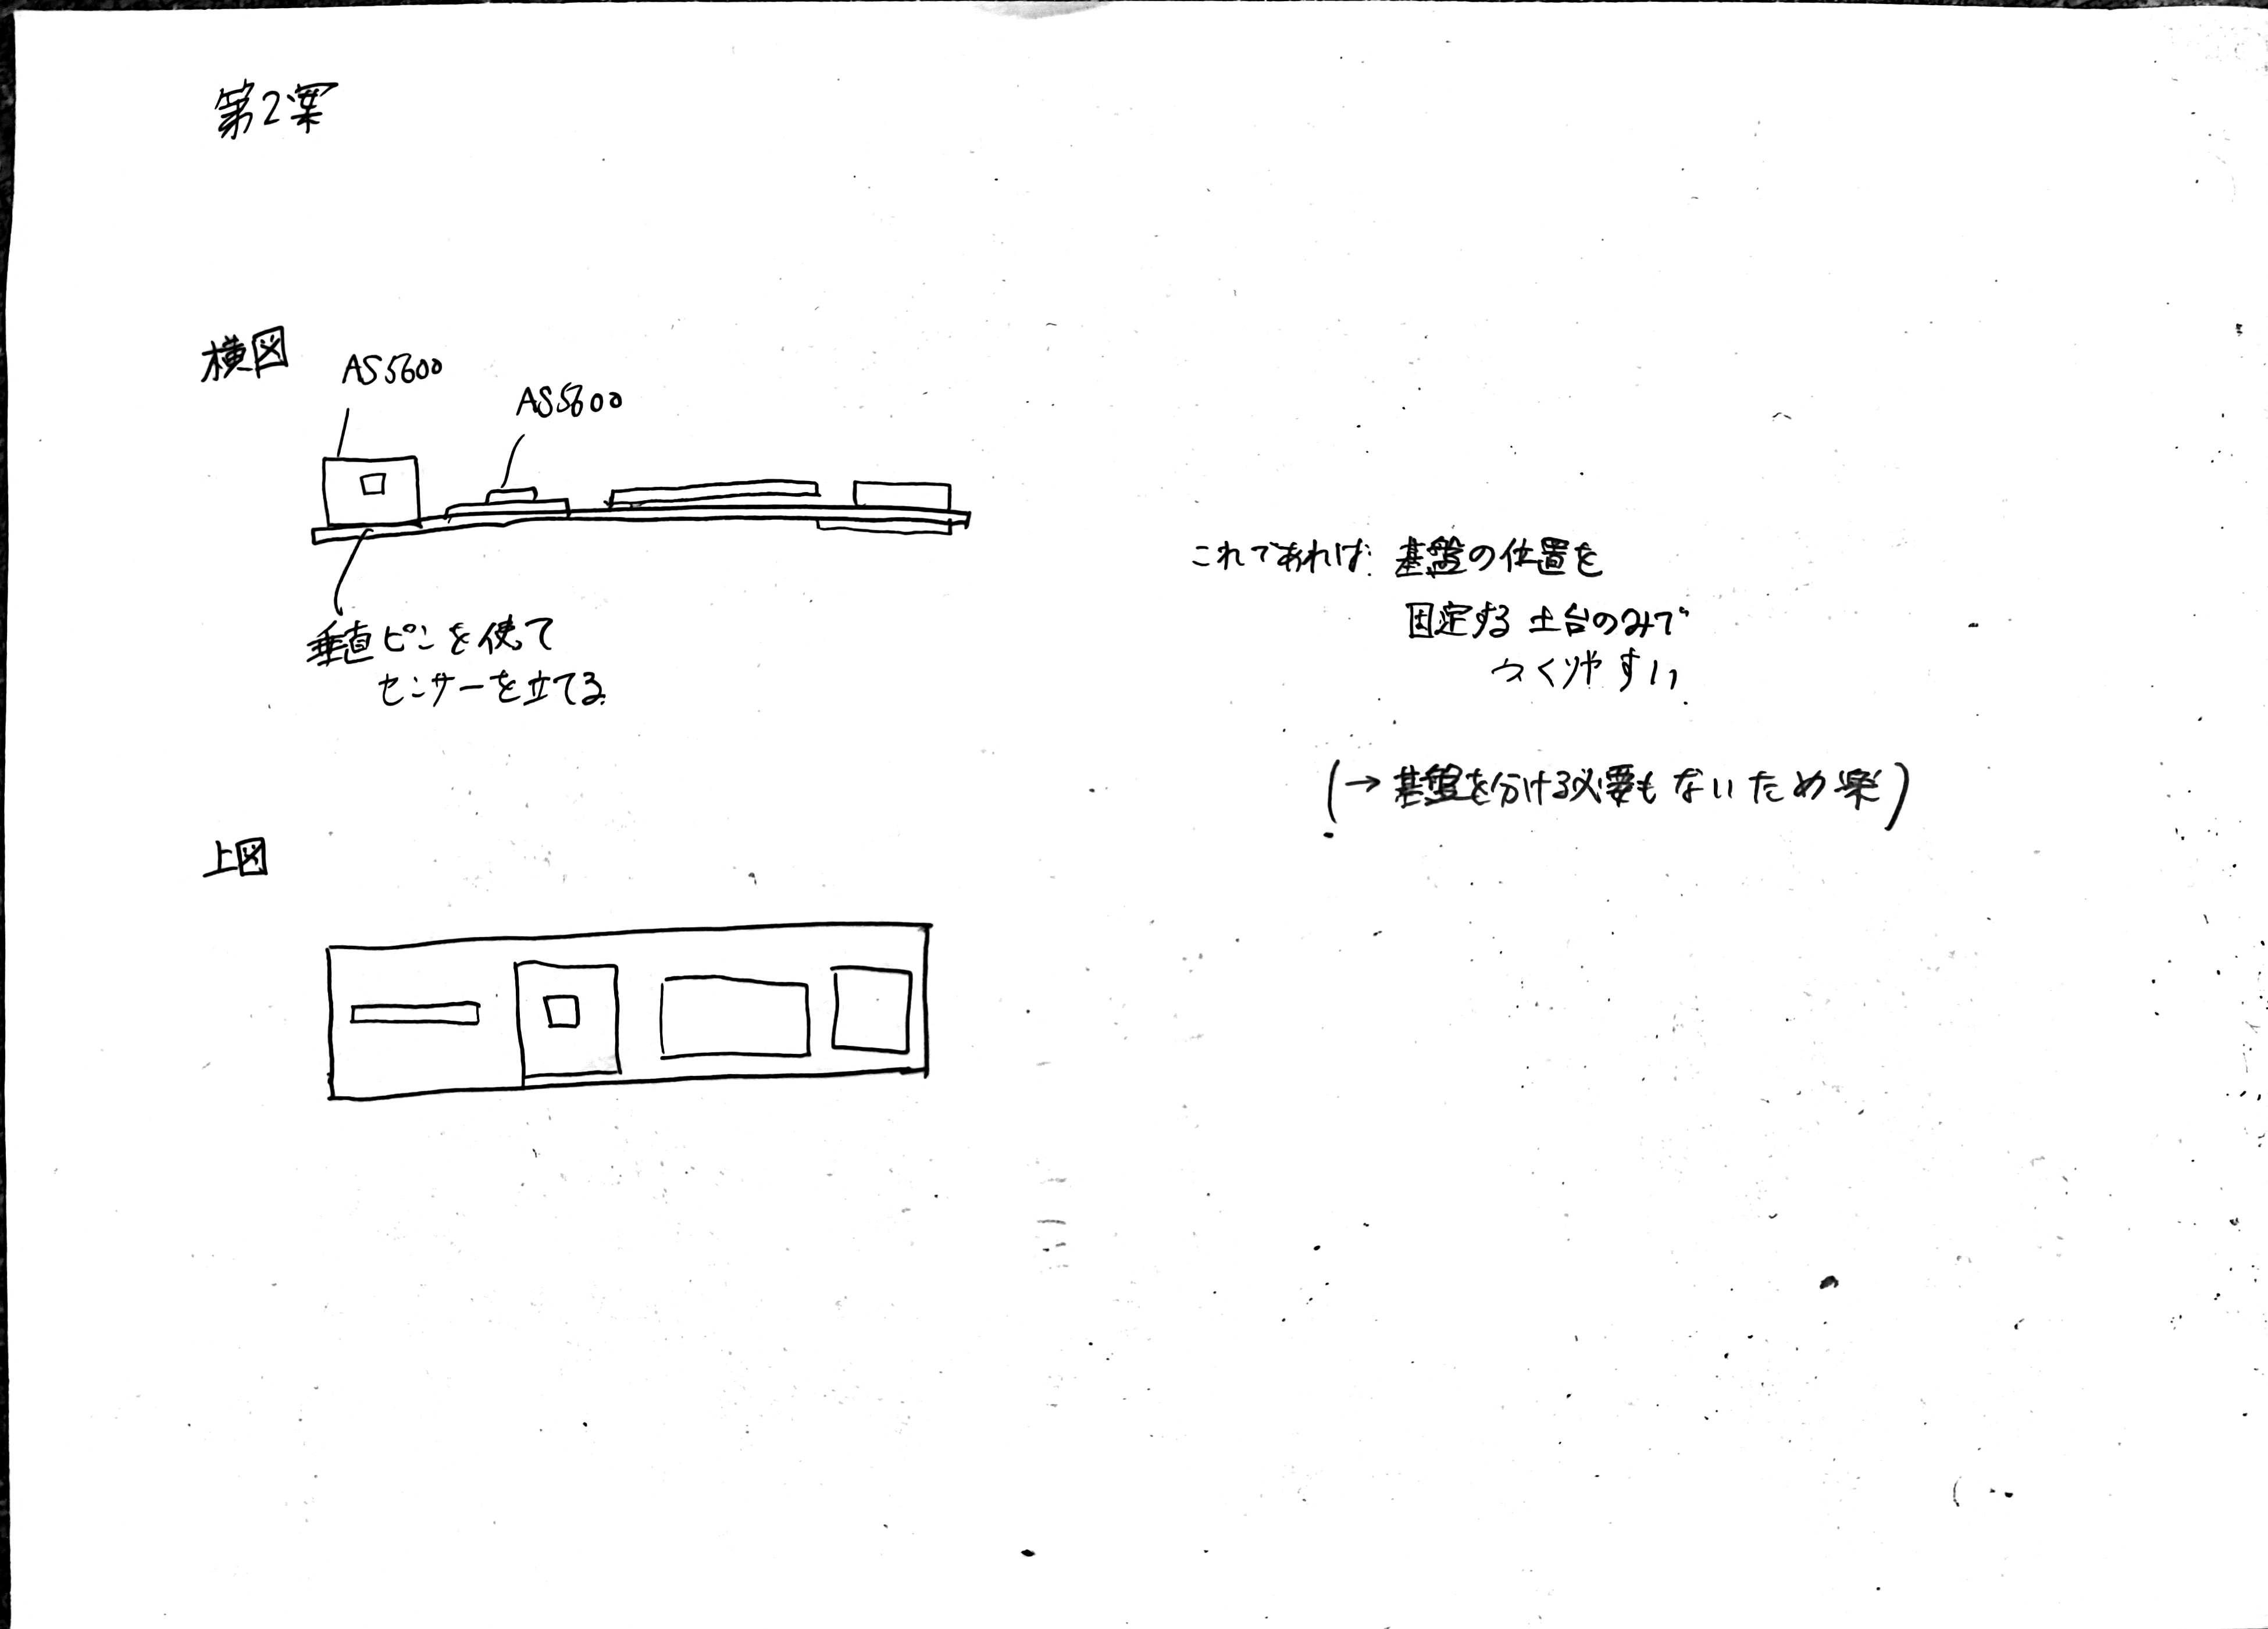 第2案
横図
AS5600
AS5600
垂直ピンを使って
センサーを立てる
これであれば 基盤の位置を
固定する土台のみで
つくりやすい
(→基盤を分ける必要もないため楽)
上図